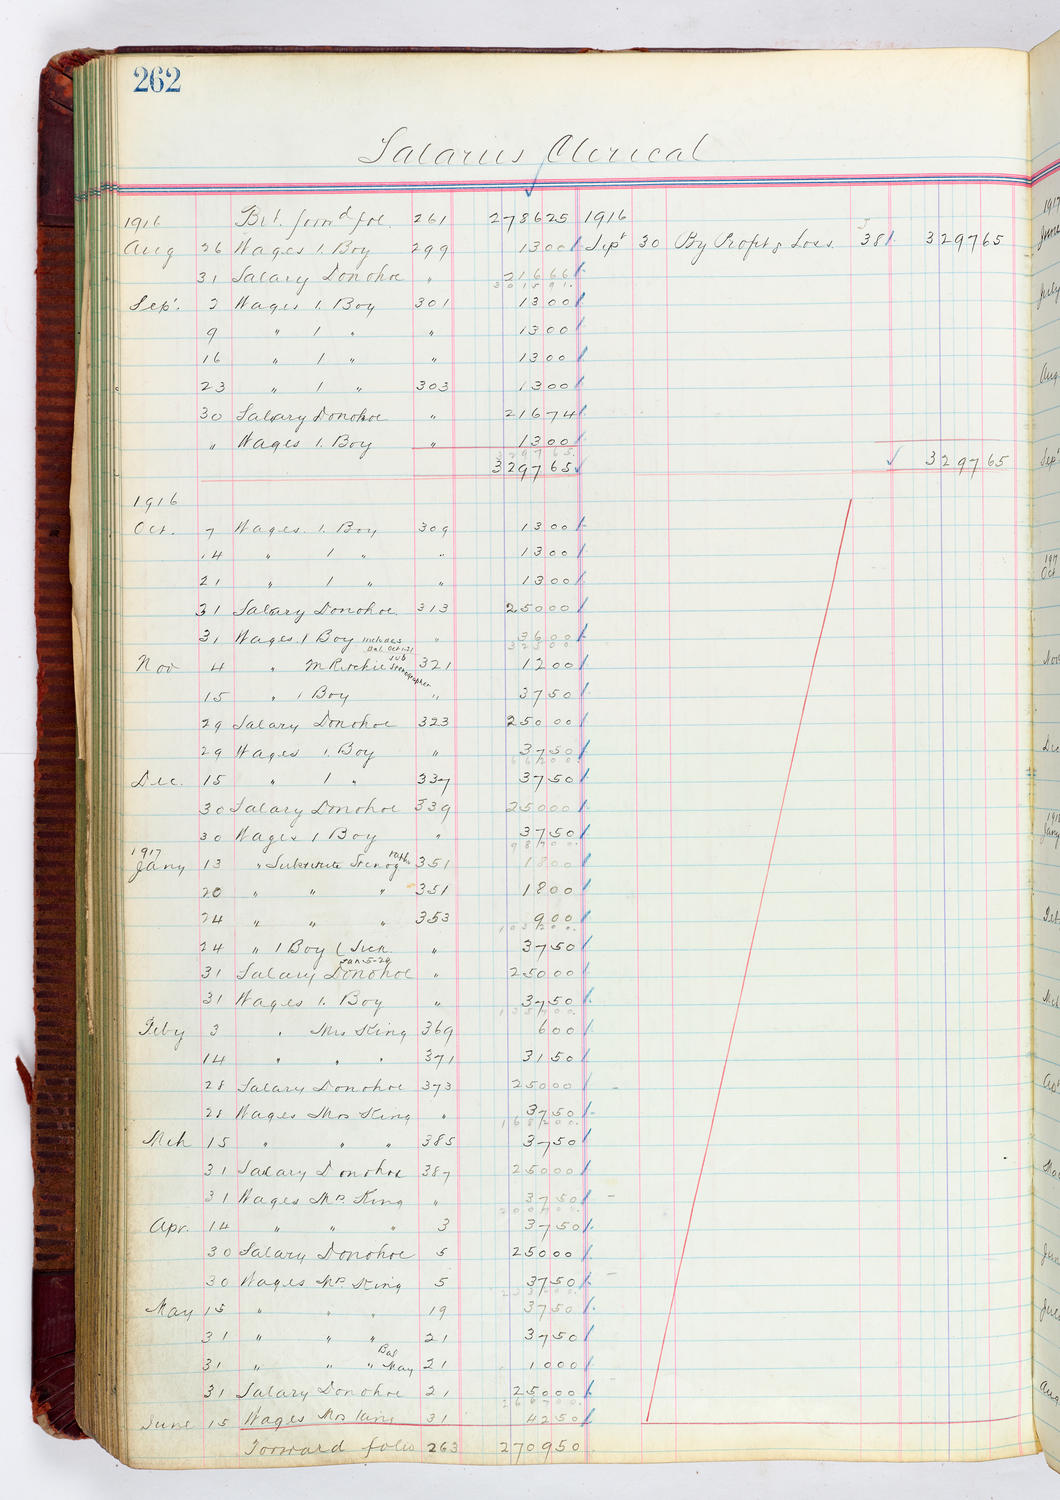 262
Salaries Clerical
1916 Bt. forwd fol. 261 278625 1916
Aug 26 Wages 1. Boy 299 1300 Sept 30 By Profit & Loss 381 329765
31 Salary Donohoe " 21666
301591
Sep. 2 Wages 1. Boy 301 1300
9 " 1 " " 1300
16 " 1 " " 1300
23 " 1 " 303 1300
30 Salary Donohoe " 21674
" Wages 1. Boy " 1300
329765
329765 329765
1916
Oct. 7 Wages. 1. Boy 309 1300
14 " 1 " " 1300
21 " 1 " " 1300
31 Salary Donohoe 313 25000
31 Wages. 1 Boy includes Bal. Oct 1-31 " 3600
32500
Nov 4 " M Ritchie sub Stenographer 321 1200
15 " 1 Boy " 3750
29 Salary Donohoe 323 25000
29 Wages 1. Boy " 3750
66200
Dec. 15 " 1 " 337 3750
30 Salary Donohoe 339 25000
30 Wages 1 Boy " 3750
98700
1917
Jany 13 " Substitute Stenog 351 1800
20 " " " 351 1800
24 " " " 353 900
103200
24 " 1 Boy (Sick Jan 5-24 " 3750
31 Salary Donohoe " 25000
31 Wages 1. Boy " 3750
135700
Feby 3 " Mrs King 369 600
14 " " " 371 3150
28 Salary Donohoe 373 25000
28 Wages Mrs King " 3750
168200
Mch 15 " " " 385 3750
31 Salary Donohoe 387 25000
31 Wages Mrs King " 3750
200700
Apr. 14 " " " 3 3750
30 Salary Donohoe 5 25000
30 Wages Mrs King 5 3750
233200
May 15 " " 19 3750
31 " " " 21 3750
31 " " " Bal May 21 1000
31 Salary Donohoe 21 25000
266700
June 15 Wages Mrs King 31 4250
Forward folio 263 270950